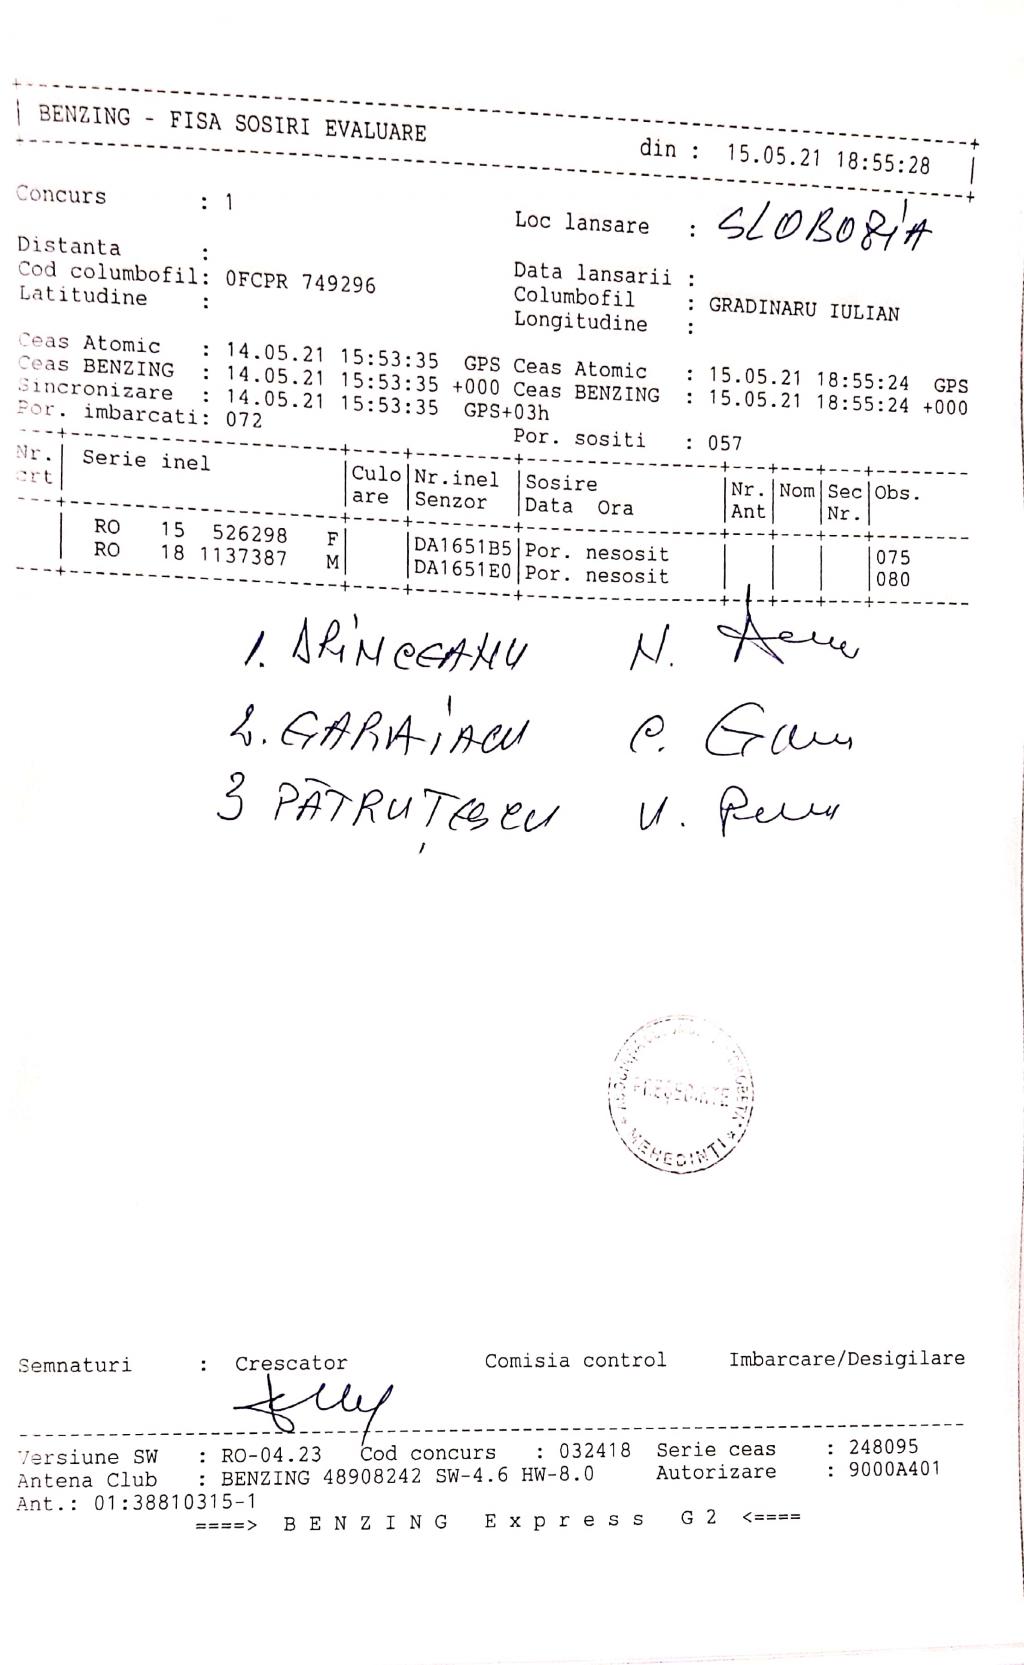 BENZING - FISA SOSIRI EVALUARE din : 15.05.21 18:55:28
Concurs : 1 Loc lansare : SLOBOZIA
Distanta : Data lansarii :
Cod columbofil: 0FCPR 749296 Columbofil : GRADINARU IULIAN
Latitudine : Longitudine :
Ceas Atomic : 14.05.21 15:53:35 GPS Ceas Atomic : 15.05.21 18:55:24 GPS
Ceas BENZING : 14.05.21 15:53:35 +000 Ceas BENZING : 15.05.21 18:55:24 +000
Sincronizare : 14.05.21 15:53:35 GPS+03h
Por. imbarcati: 072 Por. sositi : 057
Nr. Serie inel Culo Nr.inel Sosire Nr. Nom Sec Obs.
crt are Senzor Data Ora Ant Nr.
RO 15 526298 F DA1651B5 Por. nesosit 075
RO 18 1137387 M DA1651E0 Por. nesosit 080
1. DRINCEANU N.
2. GARAIACU C.
3 PĂTRUȚESCU V.
PREȘEDINTE
MEHEDINTI
Semnaturi : Crescator Comisia control Imbarcare/Desigilare
Versiune SW : RO-04.23 Cod concurs : 032418 Serie ceas : 248095
Antena Club : BENZING 48908242 SW-4.6 HW-8.0 Autorizare : 9000A401
Ant.: 01:38810315-1
====> B E N Z I N G E x p r e s s G 2 <====